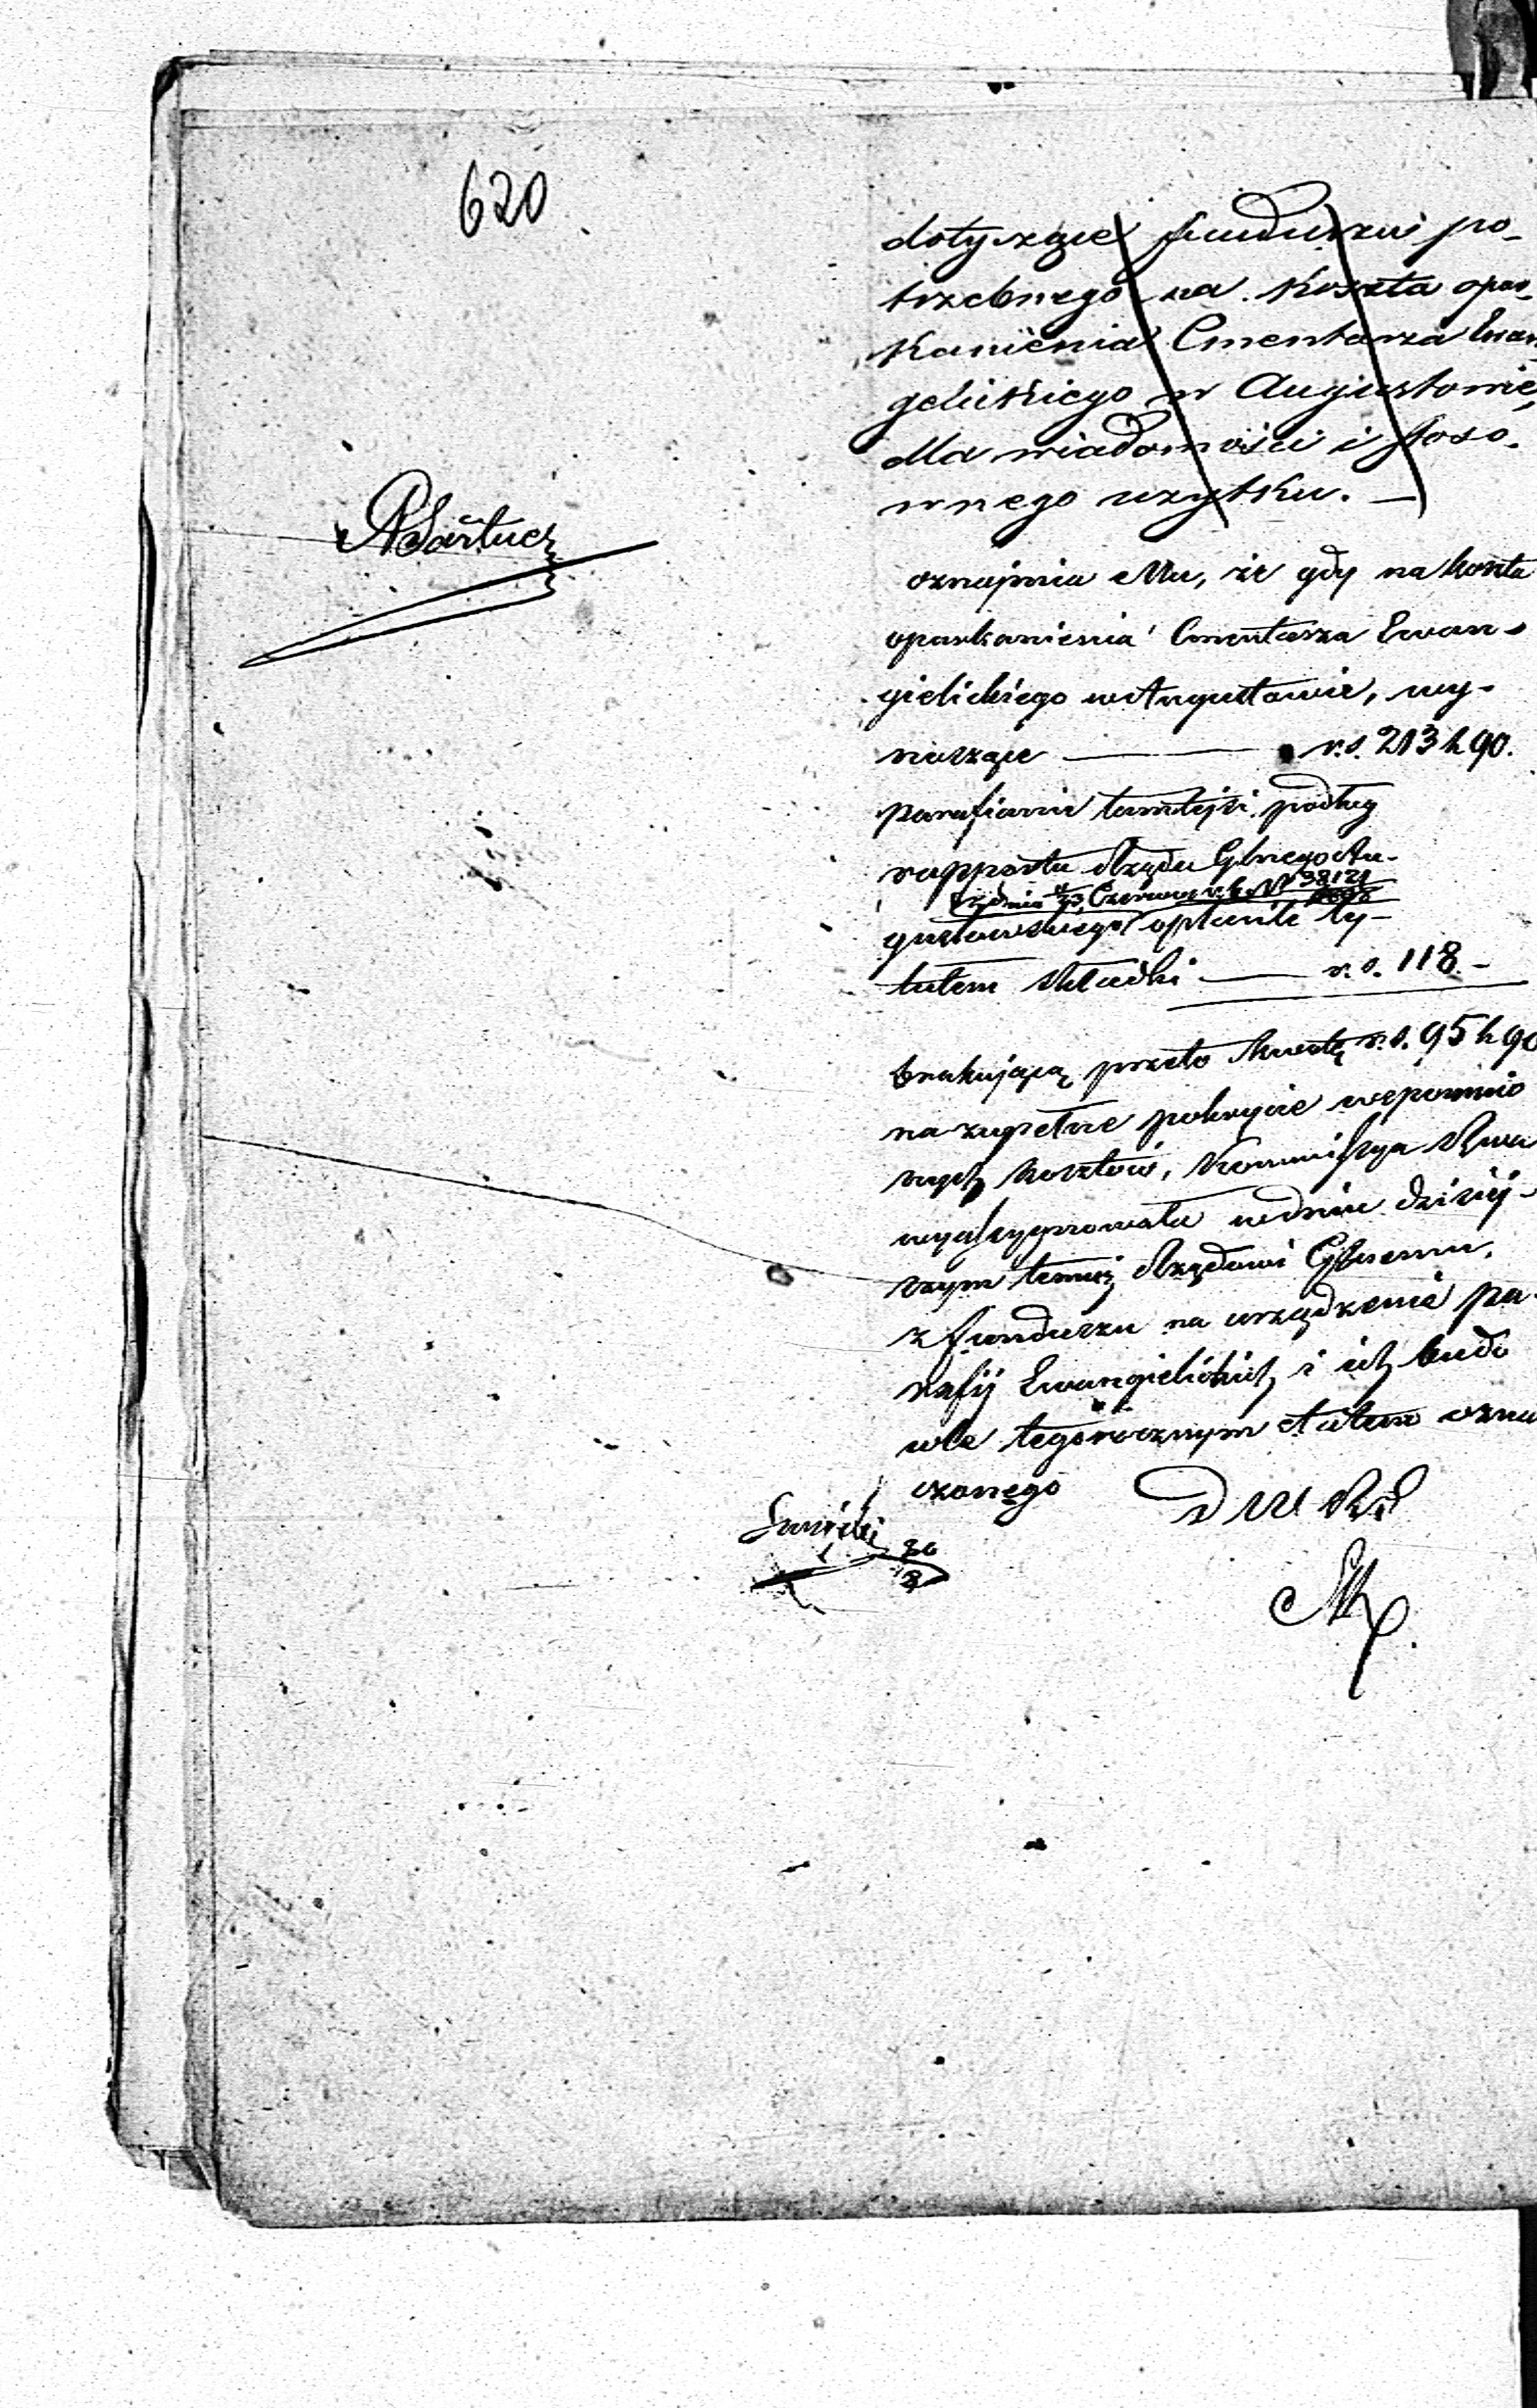 620
dotyczące funduszu po-
trzebnego na koszta opar-
kanienia Cmentarza Ewan-
gelickiego w Augustowie,
dla wiadomości i stoso-
wnego użytku. —
oznajmia Mu, że gdy na koszta
oparkanienia Cmentarza Ewan-
gielickiego w Augustowie, wy-
noszące — r.s. 213 k 90.
parafianie tamtejsi podług
rapportu Rządu Gbnego Au-
z dnia Czerwca r. b. N 38121
gustowskiego opłacili ty-
tułem składki — r.s. 118 -
brakującą przeto kwotę r.s. 95 k 90
na zupełne pokrycie wspomnio
nych kosztów, Kommissya Rzwa
wyassygnowała w dniu dzisiej-
szym temuż Rządowi Gbnemu,
z funduszu na urządzenie pa-
rafij Ewangielickich i ich budo
wle tegorocznym etatem ozna
czonego